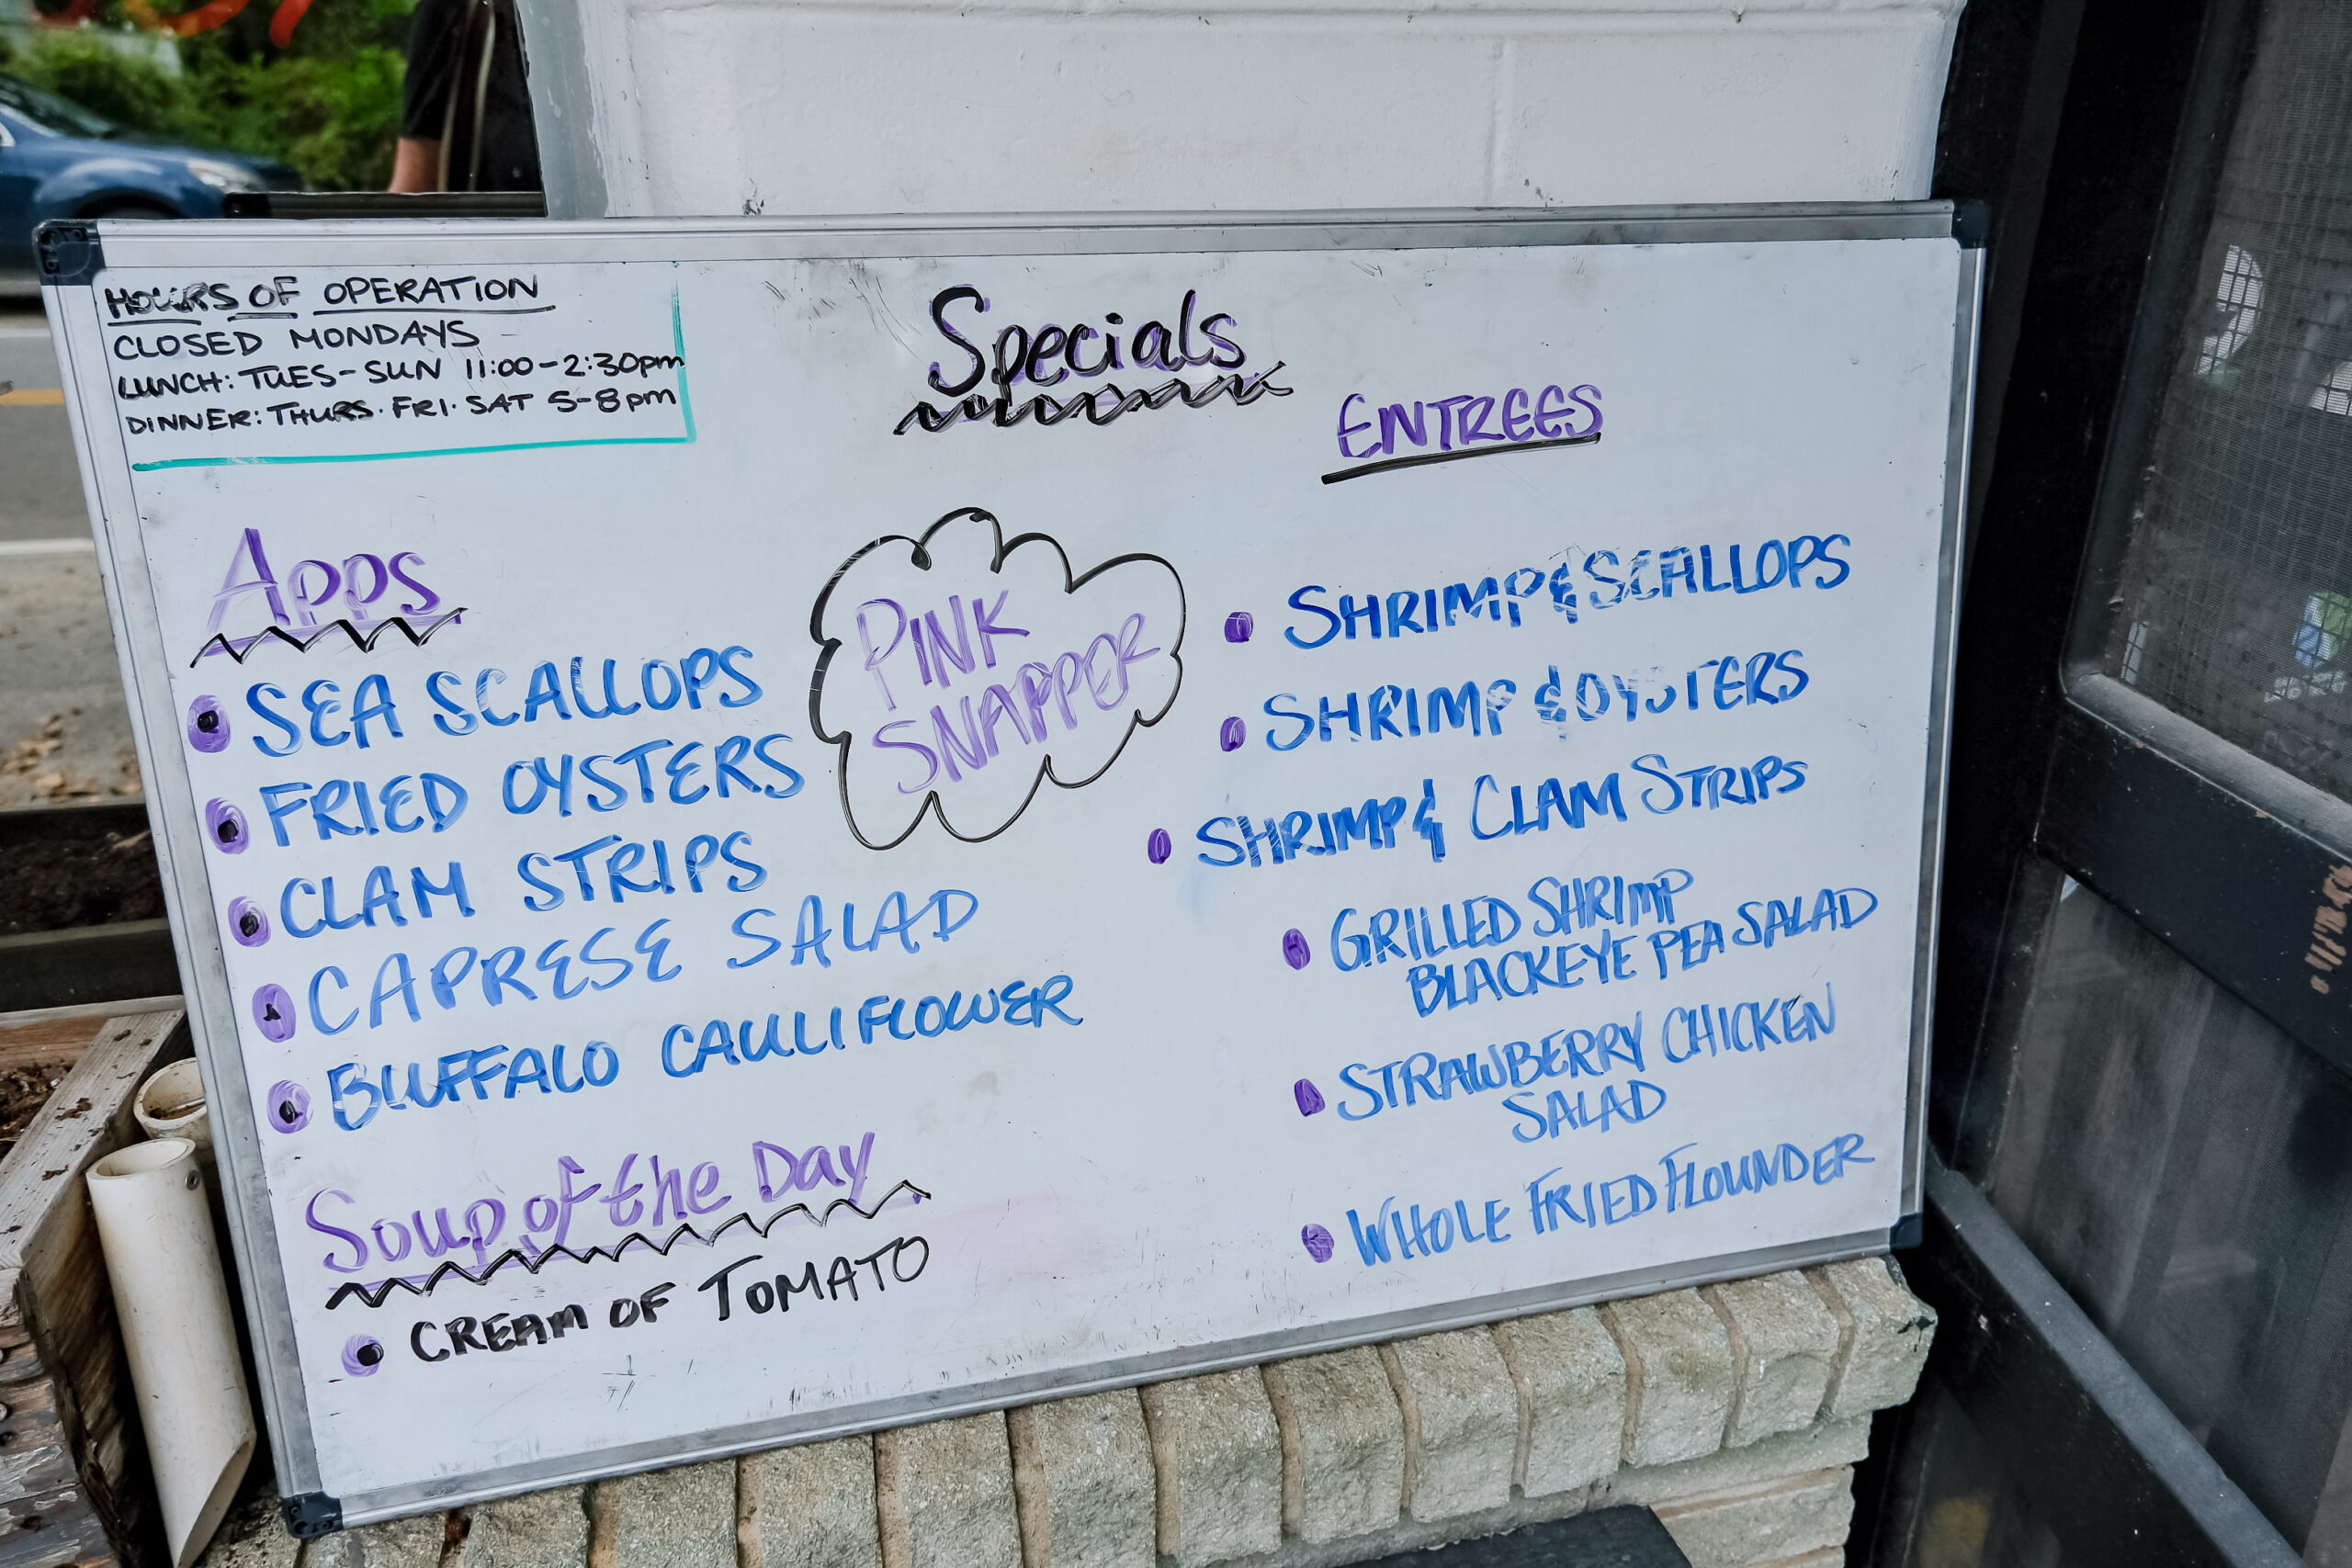 HOURS OF OPERATION
CLOSED MONDAYS
LUNCH: TUES-SUN 11:00-2:30pm
DINNER: THURS. FRI. SAT 5-8pm
Specials
Apps
SEA SCALLOPS
FRIED OYSTERS
CLAM STRIPS
CAPRESE SALAD
BUFFALO CAULIFLOWER
Soup of the Day
CREAM OF TOMATO
PINK
SNAPPER
ENTREES
SHRIMP & SCALLOPS
SHRIMP & OYSTERS
SHRIMP & CLAM STRIPS
GRILLED SHRIMP
BLACKEYE PEA SALAD
STRAWBERRY CHICKEN
SALAD
WHOLE FRIED FLOUNDER